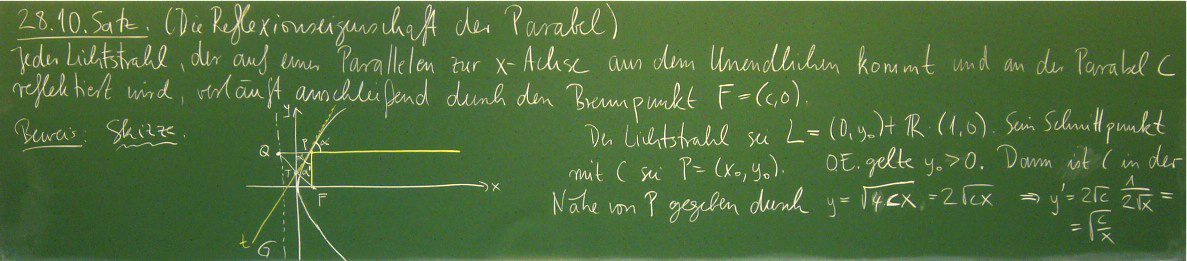 28.10. Satz. (Die Reflexionseigenschaft der Parabel)
Jeder Lichtstrahl, der auf einer Parallelen zur x-Achse aus dem Unendlichen kommt und an der Parabel C
reflektiert wird, verläuft anschließend durch den Brennpunkt F = (c,0).
Beweis: Skizze.
y
P
α
Q
T
α
x
F
t
G
Der Lichtstrahl sei L = (0,y₀) + ℝ·(1,0). Sein Schnittpunkt
mit C sei P = (x₀,y₀). OE. gelte y₀ > 0. Dann ist C in der
Nähe von P gegeben durch y = √4cx = 2√cx ⇒ y' = 2√c 1/2√x =
= √c/x